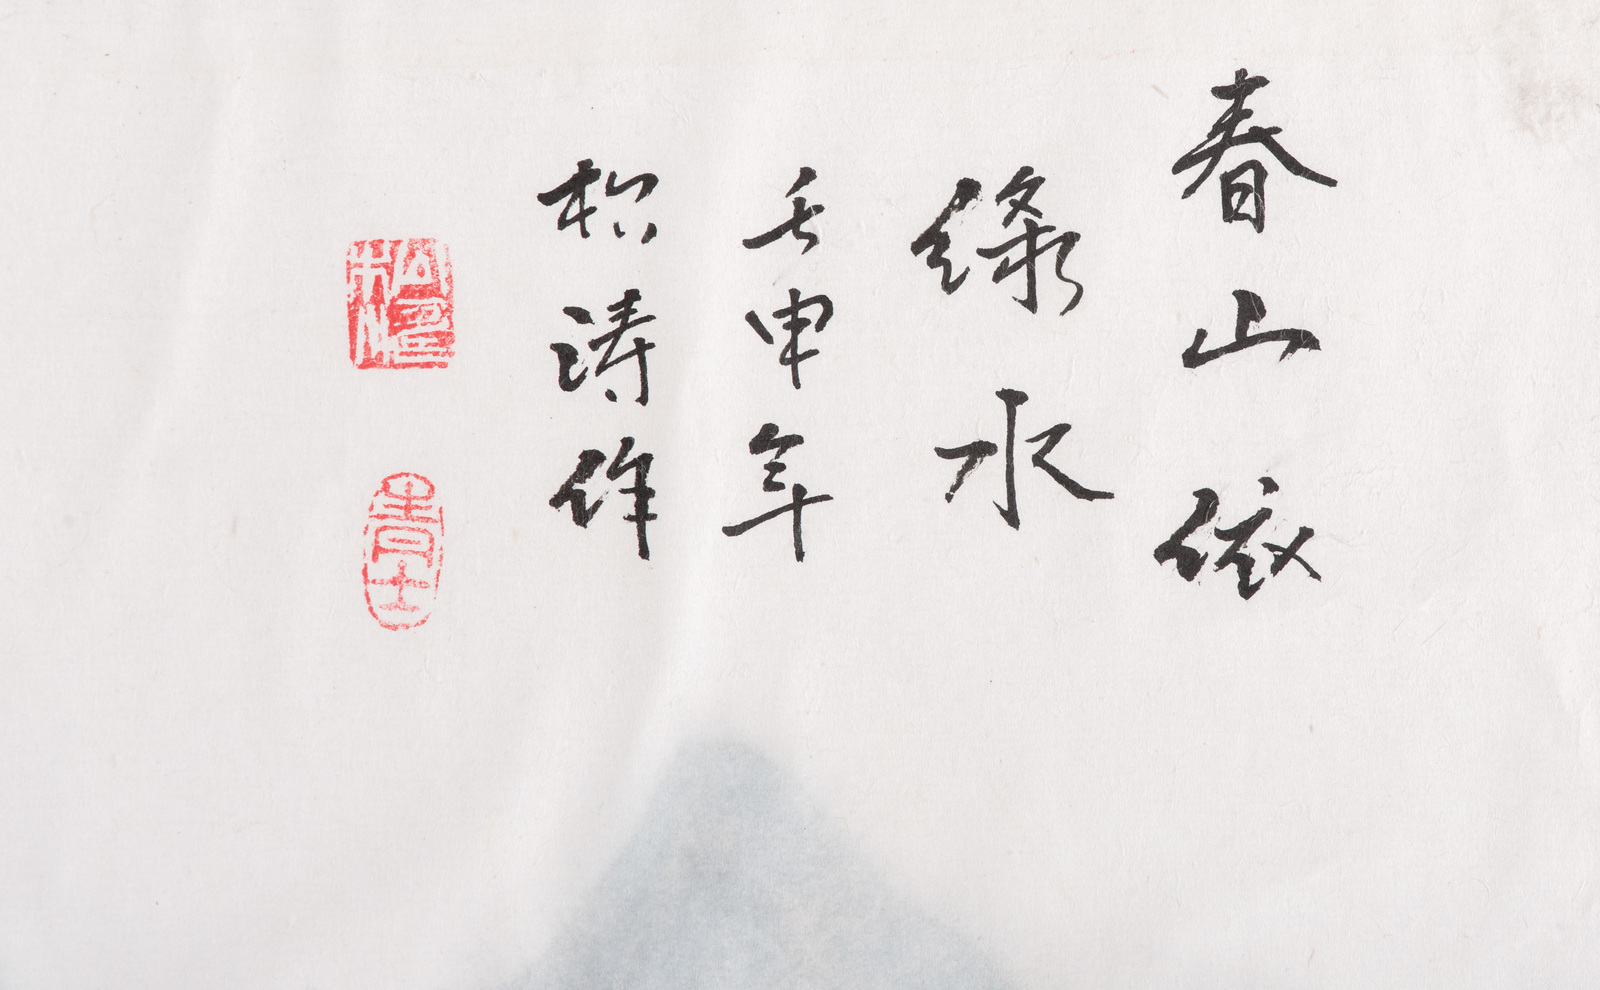 春山依
綠水
壬申年
松涛作
青士